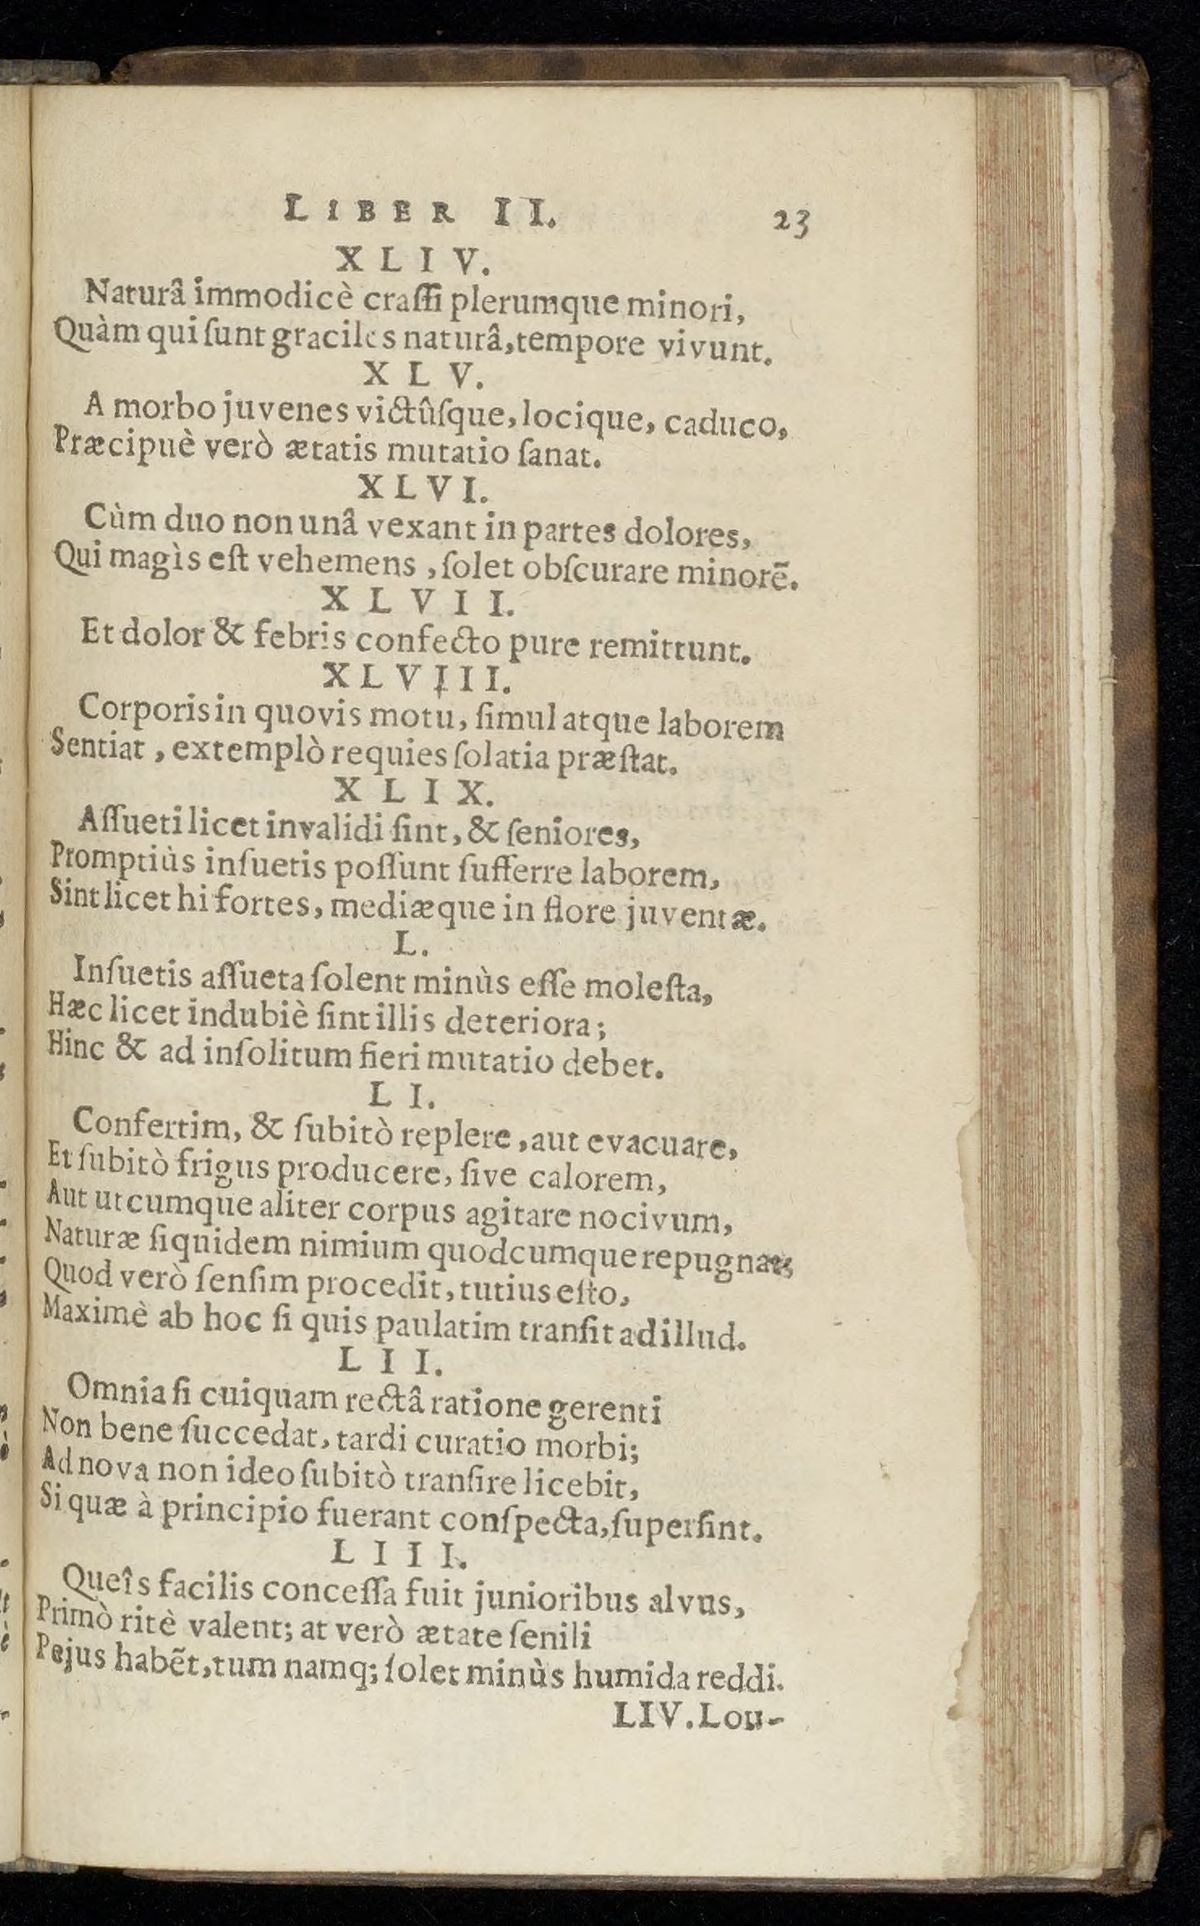 LIBER II. 23
XLIV.
Naturâ immodicè craſſi plerumque minori,
Quàm qui ſunt graciles naturâ, tempore vivunt.
XLV.
A morbo juvenes victûſque, locique, caduco,
Præcipuè verò ætatis mutatio ſanat.
XLVI.
Cùm duo non unâ vexant in partes dolores,
Qui magìs eſt vehemens, ſolet obſcurare minorē.
XLVII.
Et dolor & febris confecto pure remittunt.
XLVIII.
Corporis in quovis motu, ſimul atque laborem
Sentiat, extemplò requies ſolatia præſtat.
XLIX.
Aſſueti licet invalidi ſint, & ſeniores,
Promptiùs inſuetis poſſunt ſufferre laborem,
Sint licet hi fortes, mediæque in flore juventæ.
L.
Inſuetis aſſueta ſolent minùs eſſe moleſta,
Hæc licet indubiè ſint illis deteriora;
Hinc & ad inſolitum fieri mutatio debet.
LI.
Confertim, & ſubitò replere, aut evacuare,
Et ſubitò frigus producere, ſive calorem,
Aut utcumque aliter corpus agitare nocivum,
Naturæ ſiquidem nimium quodcumque repugnat;
Quod verò ſenſim procedit, tutius eſto,
Maximè ab hoc ſi quis paulatim tranſit ad illud.
LII.
Omnia ſi cuiquam rectâ ratione gerenti
Non bene ſuccedat, tardi curatio morbi;
Ad nova non ideo ſubitò tranſire licebit,
Si quæ à principio fuerant conſpecta, ſuperſint.
LIII.
Queîs facilis conceſſa fuit junioribus alvus,
Primò ritè valent; at verò ætate ſenili
Pejus habēt, tum namq; ſolet minùs humida reddi.
LIV. Lou-